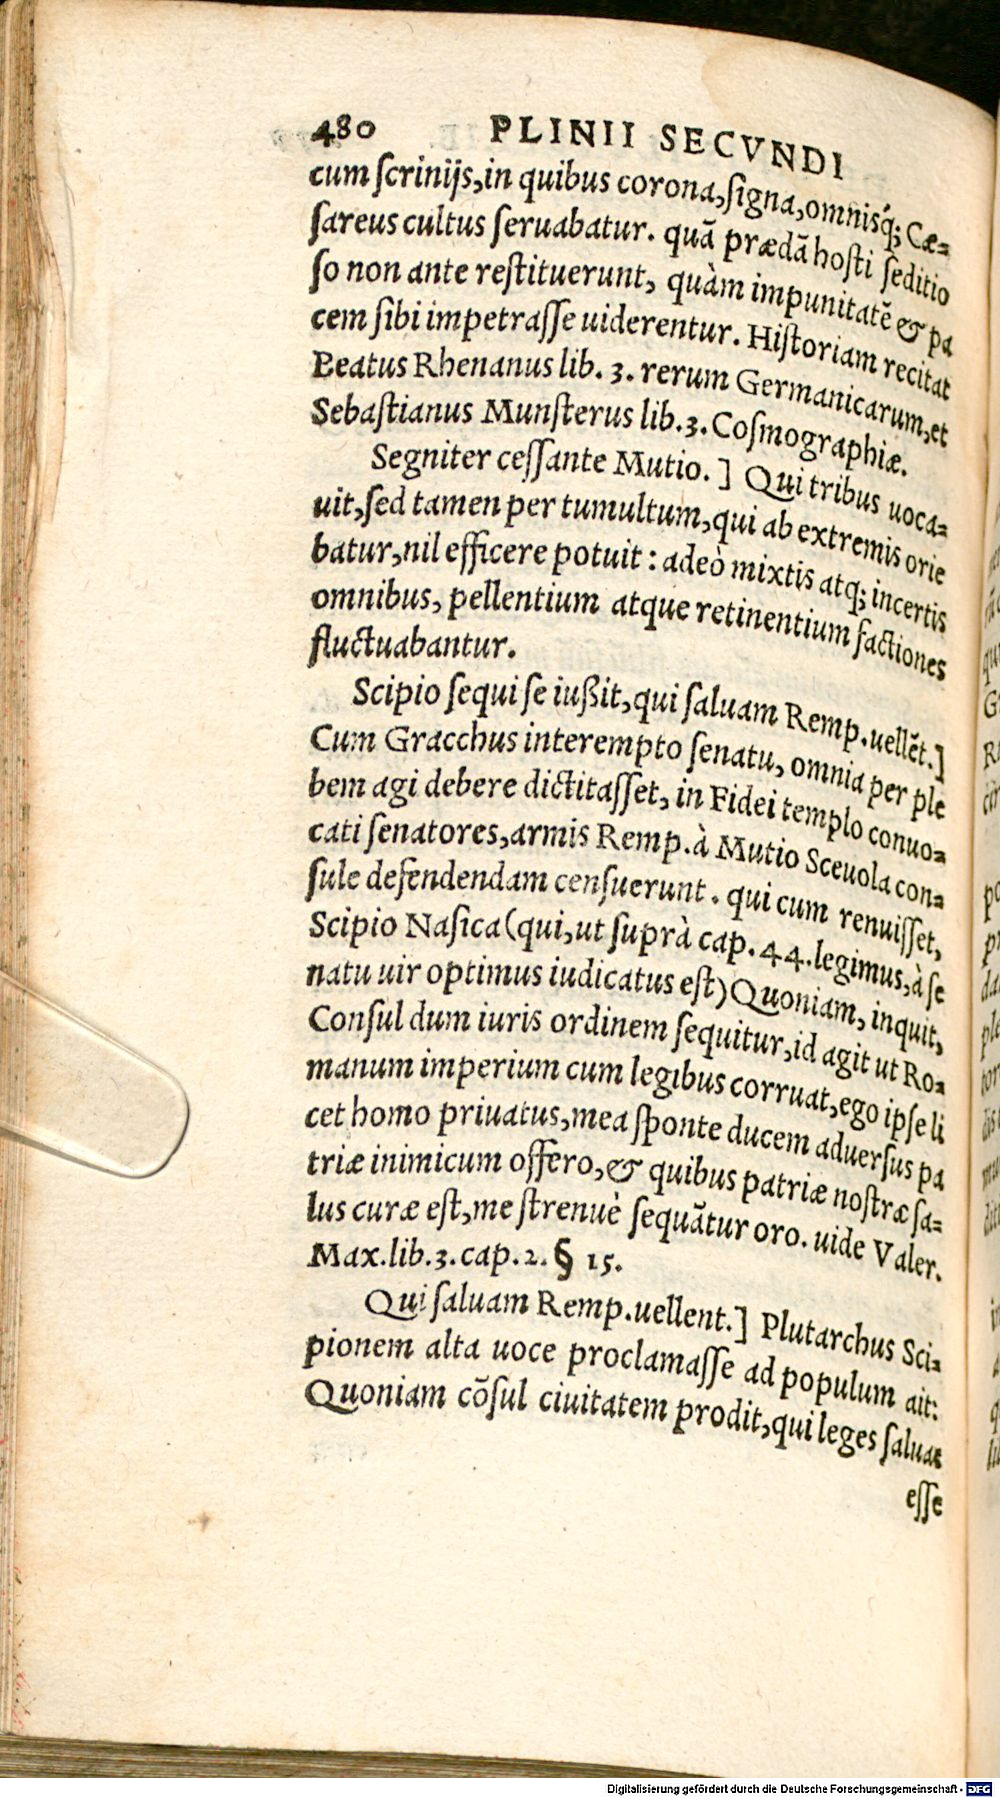 480 PLINII SECVNDI
cum ſcrinijs,in quibus corona,ſigna,omnisq́; Cæ-
ſareus cultus ſeruabatur. quã prædã hoſti ſeditio
ſo non ante reſtituerunt, quàm impunitatẽ & pa
cem ſibi impetraſſe uiderentur. Hiſtoriam recitat
Beatus Rhenanus lib. 3. rerum Germanicarum,et
Sebaſtianus Munſterus lib.3.Coſmographiæ.
Segniter ceſſante Mutio.] Qui tribus uoca-
uit,ſed tamen per tumultum,qui ab extremis orie
batur,nil efficere potuit: adeò mixtis atq; incertis
omnibus, pellentium atque retinentium factiones
fluctuabantur.
Scipio ſequi ſe iußit,qui ſaluam Remp.uellẽt.]
Cum Gracchus interempto ſenatu, omnia per ple
bem agi debere dictitaſſet, in Fidei templo conuo-
cati ſenatores,armis Remp.à Mutio Sceuola con-
ſule defendendam cenſuerunt. qui cum renuiſſet,
Scipio Naſica(qui,ut ſuprà cap.44.legimus,à ſe
natu uir optimus iudicatus eſt)Quoniam, inquit,
Conſul dum iuris ordinem ſequitur,id agit ut Ro-
manum imperium cum legibus corruat,ego ipſe li
cet homo priuatus,mea ſponte ducem aduerſus pa
triæ inimicum offero,& quibus patriæ noſtræ ſa-
lus curæ eſt,me ſtrenuè ſequãtur oro. uide Valer.
Max.lib.3.cap.2.§ 15.
Qui ſaluam Remp.uellent.] Plutarchus Sci-
pionem alta uoce proclamaſſe ad populum ait:
Quoniam cõſul ciuitatem prodit,qui leges ſaluas
eſſe
Digitalisierung gefördert durch die Deutsche Forschungsgemeinschaft - DFG